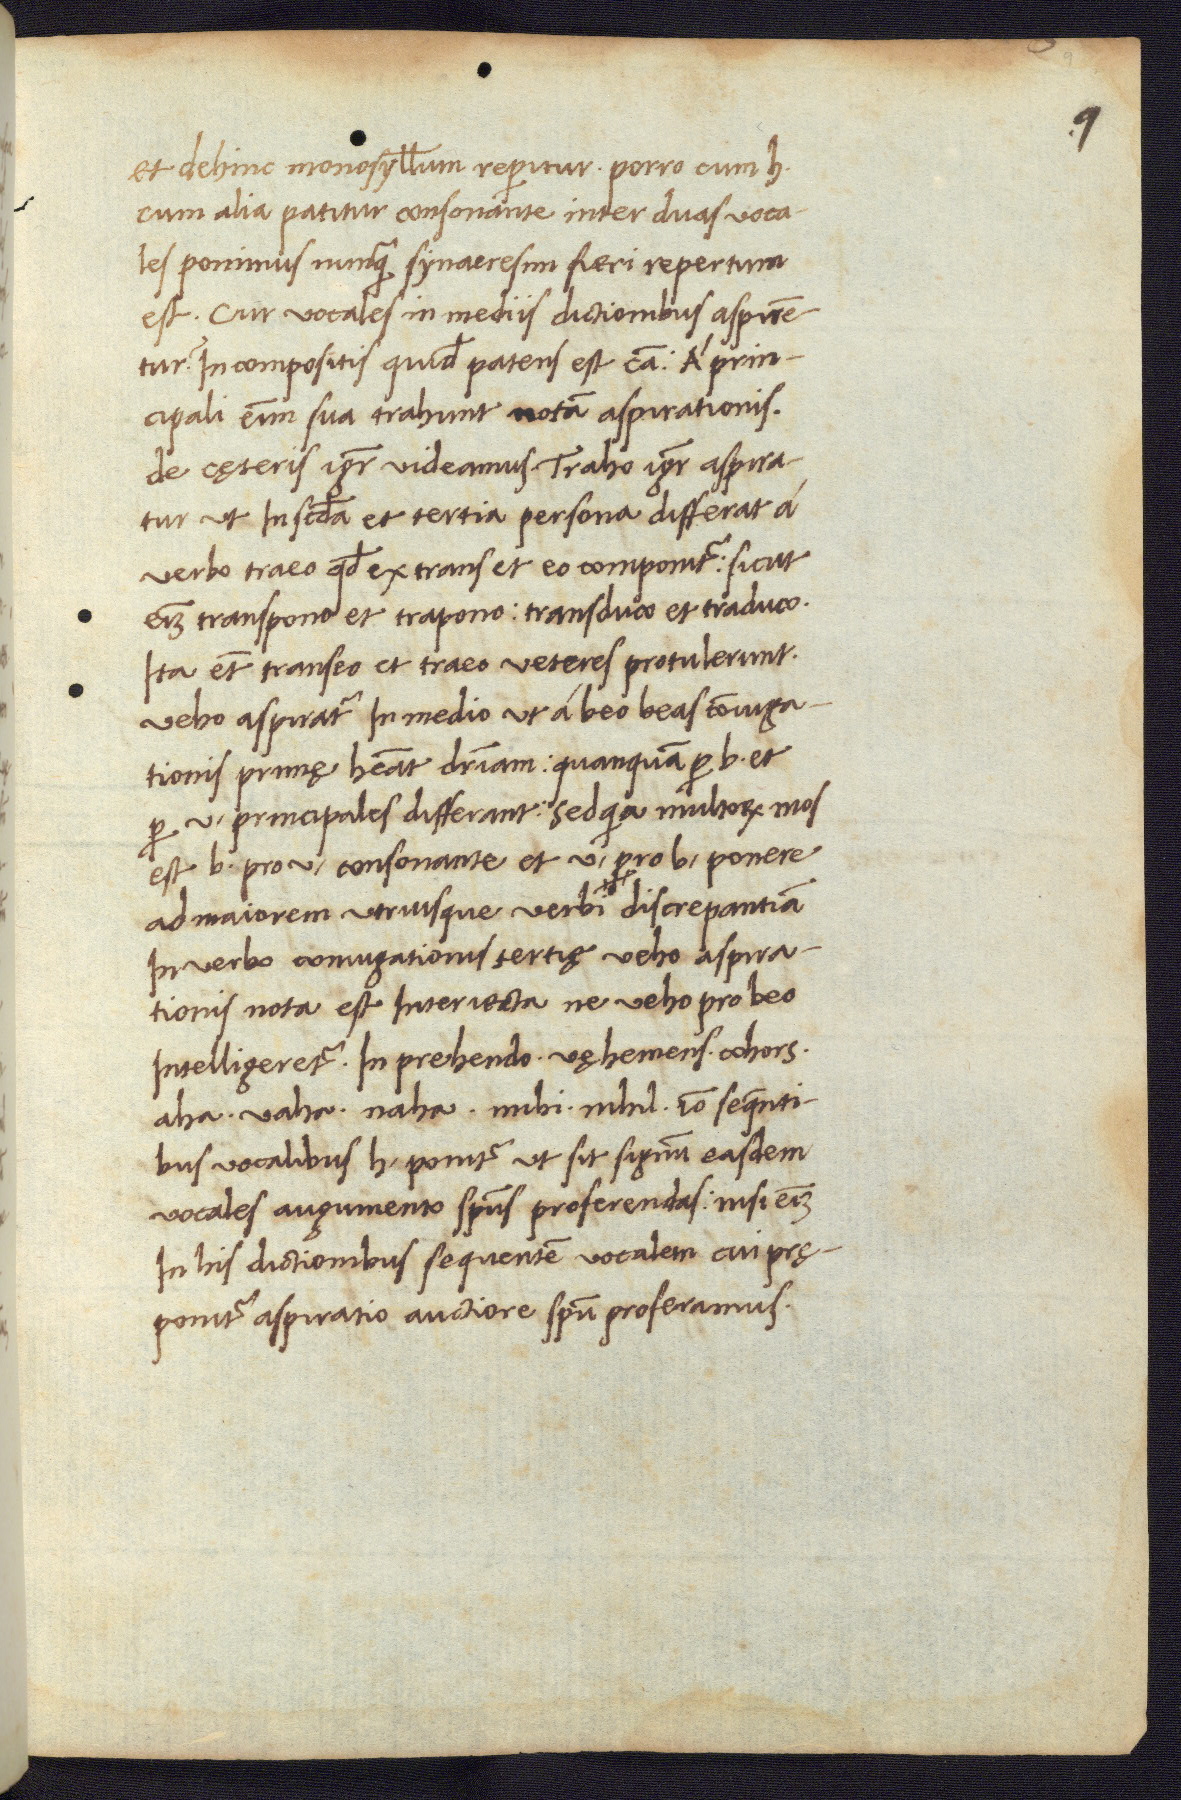 9
et dehinc monosyll̅um reꝑitur. porro cum h.
cum alia patitur consonante inter duas voca-
les ponimus nunꝗ̃ synaeresim fieri repertum
est. Cur vocales in mediis dictionibus aspirē-
tur? In compositis quid̅ patens est cā: Á prin-
cipali eīm sua trahunt notā aspirationis.
de cęteris igr̄ videamus. Traho igr̄ aspira-
tur vt In scd̄a et tertia persona differat á
verbo traeo qd̄ ex trans et eo componit᷑: sicut
eīꝫ transpono et trapono: transduco et traduco.
Ita et̄ transeo et traeo veteres protulerunt.
veho aspirat᷑ In medio vt á beo beas cōiuga-
tionis primę hēat dr̄iam: quanquā ꝑ b. et
ꝑ v, principales differant: sed quia multoꝝ mos
est b. pro v, consonante et v, pro b, ponere
ad maiorem vtriusque verbi discrepantiā
In verbo coniugationis tertię veho aspira-
tionis nota est Interiecta ne veho pro beo
Intelligeret᷑. In prehendo. vęhemens. cohors.
aha. vaha. naha. mihi. nihil. iō seq̄nti-
bus vocalibus h, ponit᷑ vt sit signū easdem
vocales augumento sp̄us proferendas: nisi eīꝫ
In his dictionibus sequentē vocalem cui prę-
ponit᷑ aspiratio auctiore sp̄u proferamus.